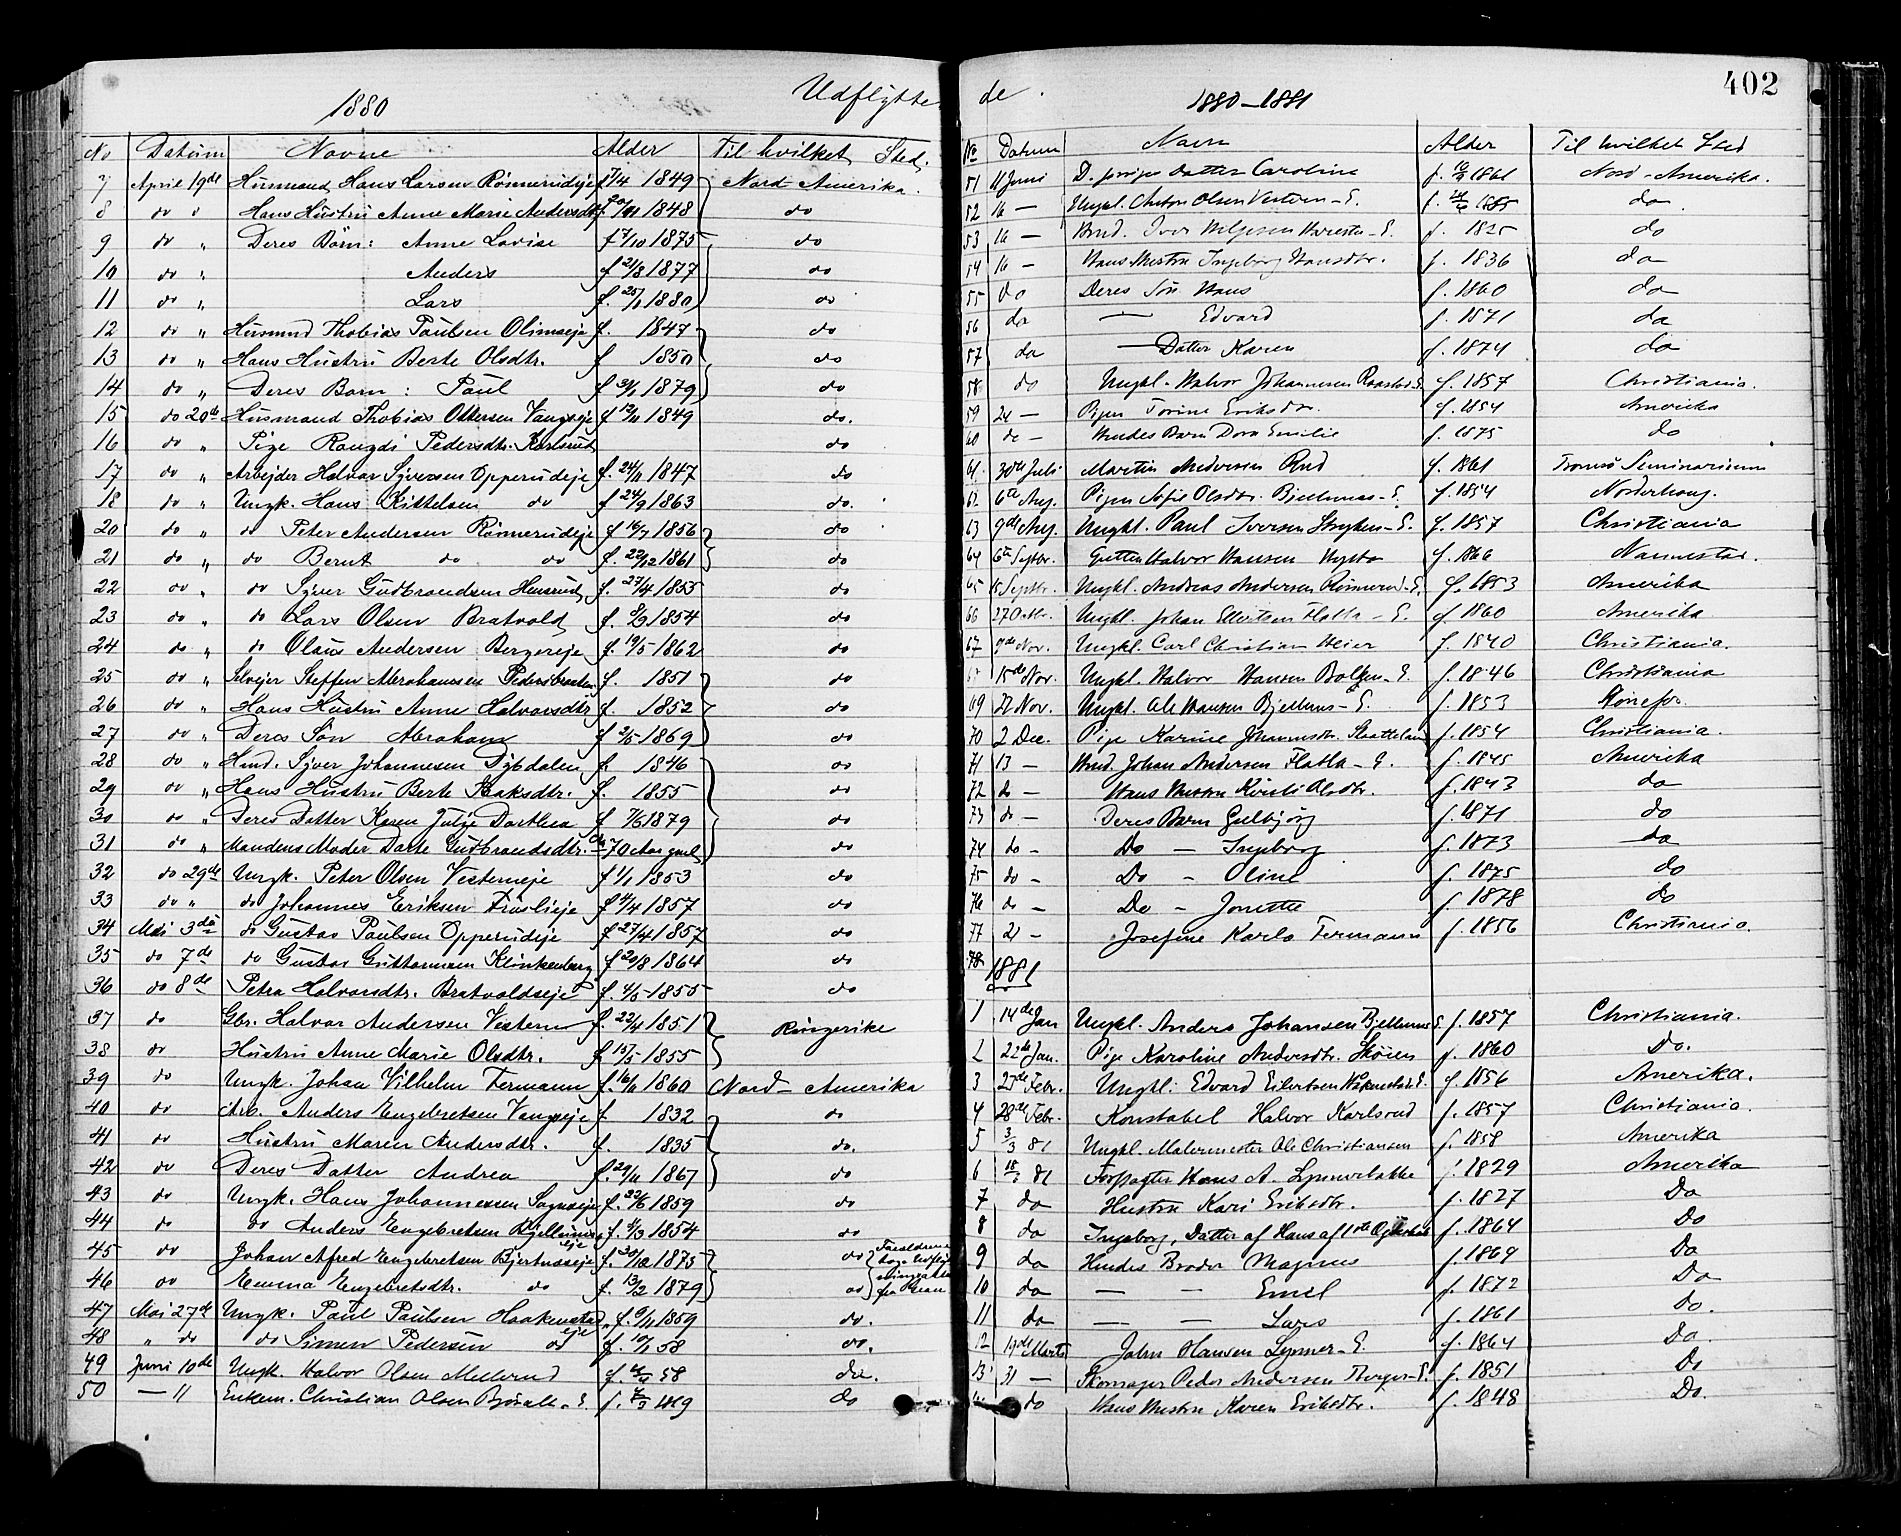 Udflyttede.
402
1880
No Datum Navne Alder Til hvilket Sted.
7 April 19de Husmand Hans Larsen Rønnerudeje f 7/4 1849 Nord-Amerika.
8 do " Hans Hustru Anne Marie Andersdtr 1848 do
9 do " Deres Børn: Anne Lovise f 7/10 1875 do
10 do " Anders f 21/8 1877 do
11 do " Lars f. 25/1 1880 do
12 do " Husmnd Thobias Paulsen Olimseje f. 1847 do
13 do " Hans Hustru Berte Olsdtr. f 1850 do
14 do " Deres Barn: Paul f 31/1 1879 do
15 do 20de Husmand Thobias Ottersen Vangseje f 12/11 1849 do.
16 do " Pige Rangdi Pedersdtr. Karlsrud do
17 do " Arbejder Halvor Syversen Opperudeje f. 24/11 1847 do
18 do " Ungk. Hans Kittelsen do f 24/9 1863 do.
20 do " do Peter Andersen Rønnerudeje f 16/7 1856 do
21 do " do Bernt do do f. 22/12 1861 do
22 do " do Syver Gudbrandsen Hensrud f. 27/4 1855 do
23 do " do Lars Olsen Bratvold f. 8/9 1854 do
24 do " do Olaus Andersen Bergereje f. 19/5 1862 do
25 do " Selvejer Steffen Abrahamsen Pedersbraaten f. 1851 do
26 do " Hans Hustru Anne Halvorsdtr f. 1852 do
27 do " Deres Søn Abraham f 2/5 1869 do
28 do " Hmd. Syver Johannesen Dybdalen f. 1846 do
29 do " Hans Hustru Berte Isaksdtr. f. 1855 do
30 do " Deres Datter Karen Julie Dorthea f 7/6 1879 do
31 do " Mandens Moder Dorte Gudbrandsdtr. 70 Aar gml do
32 do 29de Ungk. Peter Olsen Vesterneje f 1/1 1853 do
33 do " do Johannes Eriksen Fruslieje f 4/4 1857 do
34 Mai 3de do Gustav Paulsen Opperudeje f 27/4 1857 do
35 do 7de do Gustav Guttormsen Klinkenberg f 20/8 1864 do
36 do 8de Petra Halvorsdtr. Bratvoldseje f. 4/5 1855 do
37 do Gbr. Halvor Andersen Vestern f. 22/4 1851 Ringerike
38 do Hustru Anne Marie Olsdtr. f 15/5 1855
39 do Ungk. Johan Vilhelm Fermann f. 16/11 1860 Nord-Amerika
40 do Arb. Anders Engebretsen Vangseje f 1832 do
41 do Hustru Maren Andersdtr. f. 1835 do.
42 do Deres Datter Andrea f. 29/11 1867 do
43 do Ungk. Hans Johannessen Sogneeje f. 22/6 1859 do
44 do do Anders Engebretsen Bjellumseje f. 4/3 1854 do
45 do Johan Alfred Engebretsen Bjertnæseje f. 30/10 1875 do
46 do Emma Engebretsdtr. do f. 13/2 1879 do Forældrene
47 Mai 27de Ungk. Paul Paulsen Haakenstadeje f. 9/11 1859 do.
48 " do do Simen Pedersen do f. 10/1 58 do.
49 Juni 10de Ungk. Halvor Olsen Mellerud 58 do.
50 — 11 Enkem. Christian Olsen Bjørale-E. do
1880-1881
No Datum Navn Alder Til hvilket Sted
51 11 Juni D. forriges Datter Caroline 1861 Nord-Amerika.
52 16 — Ungkl. Anton Olsen Vestern-E. do
53 16 — f. 1825 do
54 16 — Hans Hustru Ingeborg Hansdtr. f. 1836 do
55 do Deres Søn Hans f. 1860 do
56 do — Edvard f. 1871 do
57 do — Datter Karen f. 1874 do
58 do Ungkl. Halvor Johannesen Raastad E. f. 1857 Christiania.
59 24 — Pigen Torine Eriksdtr. f. 1854 Amerika
60 do — Hendes Barn Dora Emilie f. 1875 do
61 30te Juli Martin Andersen Rud f. 1861 Tromsø Seminarium
62 6te Aug. Pigen Sofie Olsdtr. Bjellumss-E. f. 1854 Norderhoug.
63 9de Aug. Ungkl. Paul Iversen Stryken-E. f. 1857 Christiania
64 6te Septbr. Gutten Halvor Hansen f. 1866 Nannestad.
65 15 Septbr. Ungkl. Andreas Andersen Rønnerud-E. f. 1853 Amerika
66 27 Octbr. Ungkl. Johan Ellertsen Flatla-E. f. 1860 Amerika
67 9de Nov. Ungkl. Carl Christian Heier f. 1840 Christiania.
15de Nov. Ungkl. Halvor Hansen E. f. 1846 Christiania
69 22 Nov. Ungkl. Ole Hansen Bjellums-E. f. 1853
70 2 Dec. Pige Karine Johannsdtr. f. 1854 Christiania.
71 13 — Hmd. Johan Andersen Flatla-E. f. 1845 Amerika
72 do — Hans Hustru Kirsti Olsdtr. f. 1843 do
73 do — Deres Barn Gulbjørg f. 1871 do
74 do — Do — Ingeborg f. 1873 do
75 do — Do — Oline f. 1875 do
76 do — Do — Jonette f. 1878 do
77 21 — Josefine Karla Fermann f. 1856 Christiania.
78
1881
1 14de Jan Ungkl. Anders Johansen Bjellums E. f. 1857 Christiania.
2 22de Jan. Pige Karoline Andersdtr. Skøien f. 1860 Do.
3 27de Febr. Ungkl: Edvard Eilertsen E. f. 1856 Amerika.
4 28de Febr. Konstabel Halvor Karlsrud f. 1857 Christiania.
5 3/3 81 Ungkl. Malermester Ole Christiansen f. 1858 Amerika
6 81 Forpagter Hans A. f. 1829 Amerika
7 do Hustru Kari Eriksdtr. f. 1827 Do
8 do Ingeborg, Datter af Hans af 1ste Ægteskab f. 1864 Do
9 do Hendes Broder Magnus f. 1869 Do
10 do — — Emil f. 1872 Do
11 do — — Lars f. 1861 do.
12 19de Marts John Hansen Lynner-E. f. 1864 Do.
13 31 — Skomager Peder Andersen E. f. 1851 Do
do Hans Hustru Karen Eriksdtr. f. 1848 Do.